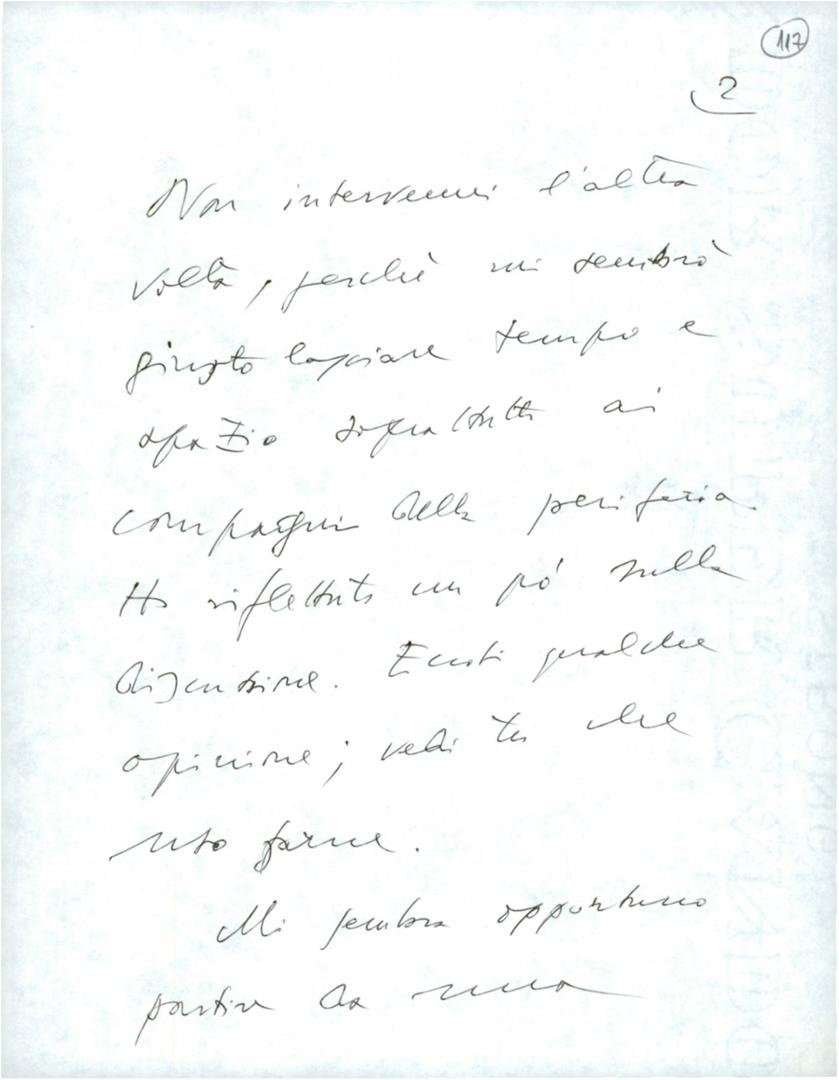 117
2
Non intervenni l'altra
volta, perchè mi sembrò
giusto lasciare tempo e
spazio soprattutto ai
compagni della periferia.
Ho riflettuto un pó sulla
discussione. Eccoti qualche
opinione; vedi tu che
uso farne.
Mi sembra opportuno
partire da una